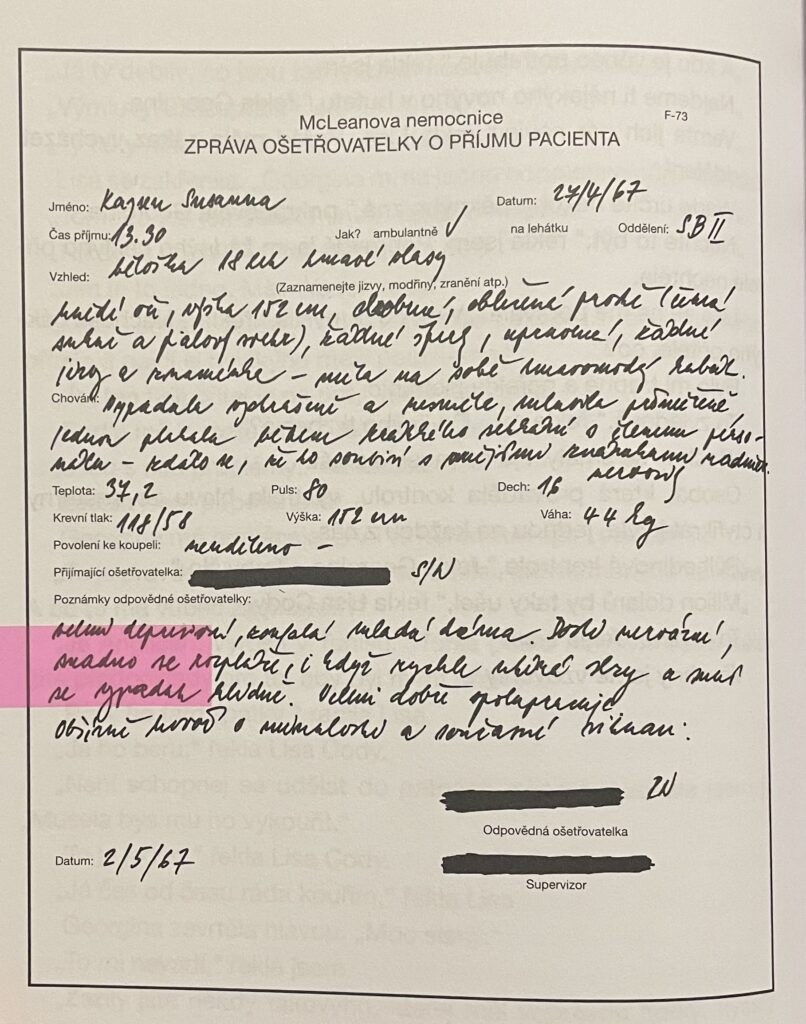 McLeanova nemocnice
F-73
ZPRÁVA OŠETŘOVATELKY O PŘÍJMU PACIENTA
Jméno: Kaysen Susanna Datum: 27/4/67
Čas příjmu: 13.30 Jak? ambulantně ✓ na lehátku Oddělení: SB II
Vzhled: běloška 18 let tmavé vlasy
(Zaznamenejte jizvy, modřiny, zranění atp.)
hnědé oči, výška 152 cm, drobná, oblečená prostě (černá
sukně a fialový svetr), žádné šperky, upravená, žádné
jizvy a znaménka – měla na sobě tmavomodrý kabát.
Chování: Vypadala vystrašeně a nesměle, mluvila přiměřeně,
jednou plakala během krátkého setkání s členem perso-
nálu – zdálo se, že to souvisí s
nervový
Teplota: 37,2 Puls: 80 Dech: 16
Krevní tlak: 118/58 Výška: 152 cm Váha: 44 kg
Povolení ke koupeli: neuděleno –
Přijímající ošetřovatelka: S/N
Poznámky odpovědné ošetřovatelky:
velmi depresivní, zoufalá mladá dáma. Dosti nervózní,
snadno se rozpláče, i když rychle utírá slzy a snaží
se vypadat klidně. Velmi dobře spolupracuje
Obšírně hovoří o minulosti a současné situaci.
ZN
Odpovědná ošetřovatelka
Datum: 2/5/67
Supervizor